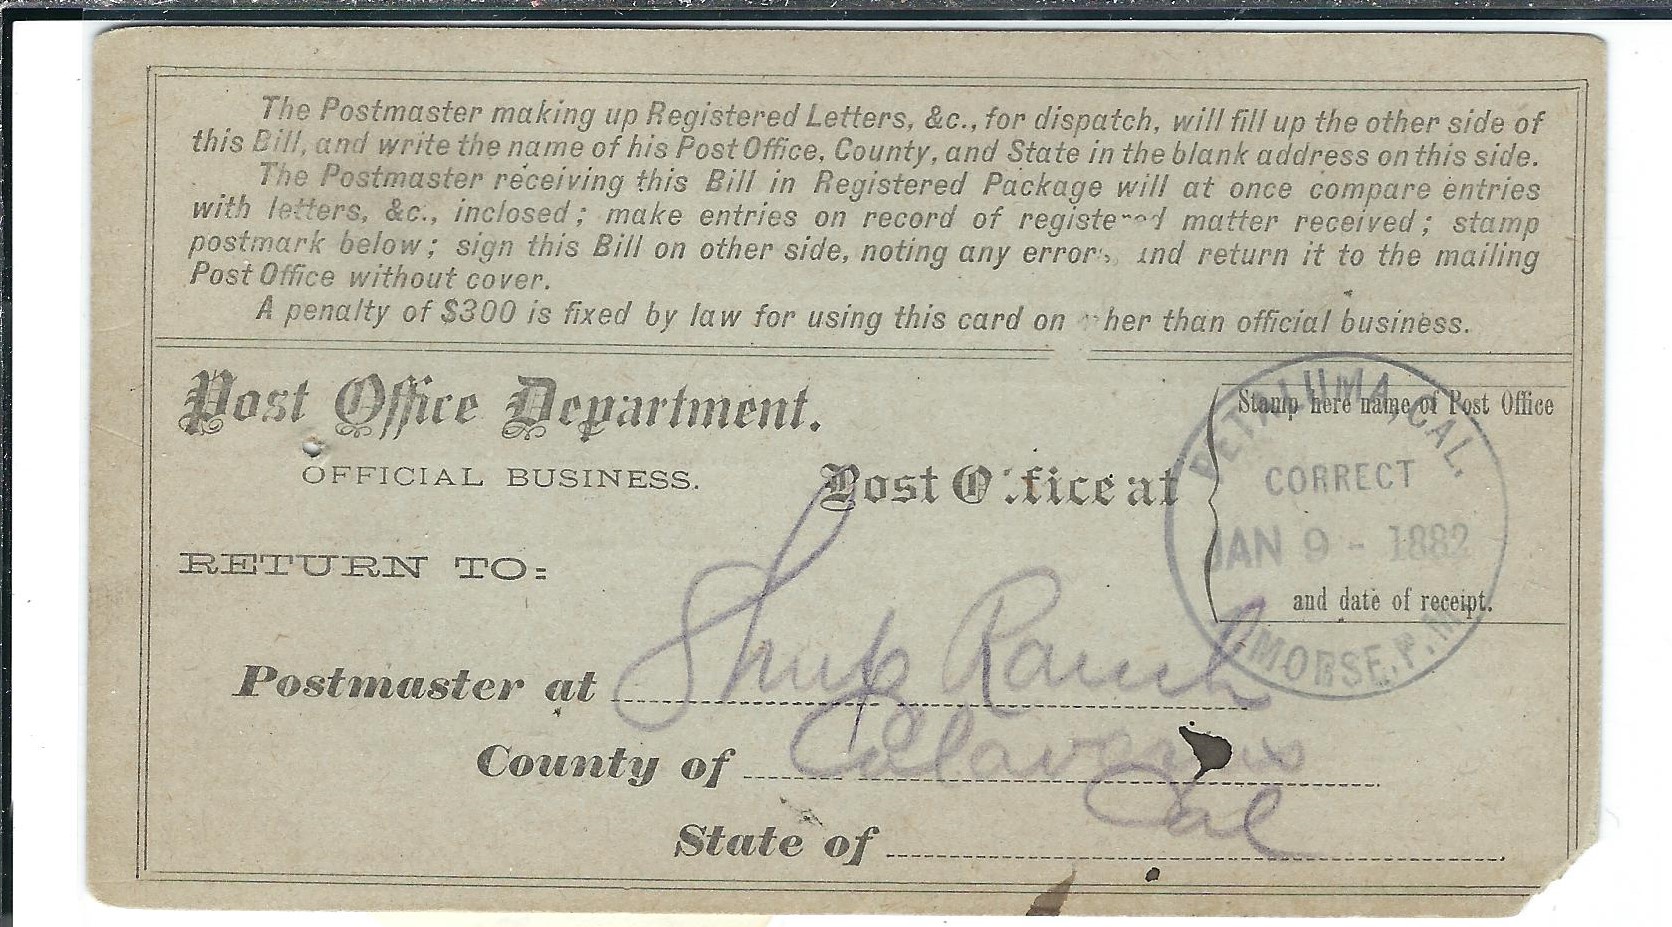 The Postmaster making up Registered Letters, &c., for dispatch, will fill up the other side of
this Bill, and write the name of his Post Office, County, and State in the blank address on this side.
The Postmaster receiving this Bill in Registered Package will at once compare entries
with letters, &c., inclosed; make entries on record of registered matter received; stamp
postmark below; sign this Bill on other side, noting any errors, and return it to the mailing
Post Office without cover.
A penalty of $300 is fixed by law for using this card on other than official business.
Post Office Department.
OFFICIAL BUSINESS.
Post Office at
Stamp here name of Post Office
and date of receipt.
PETALUMA, CAL.
CORRECT
JAN 9 - 1882
MORSE, P.M.
RETURN TO:
Postmaster at Shup Ranch
County of Calaveras
State of Cal